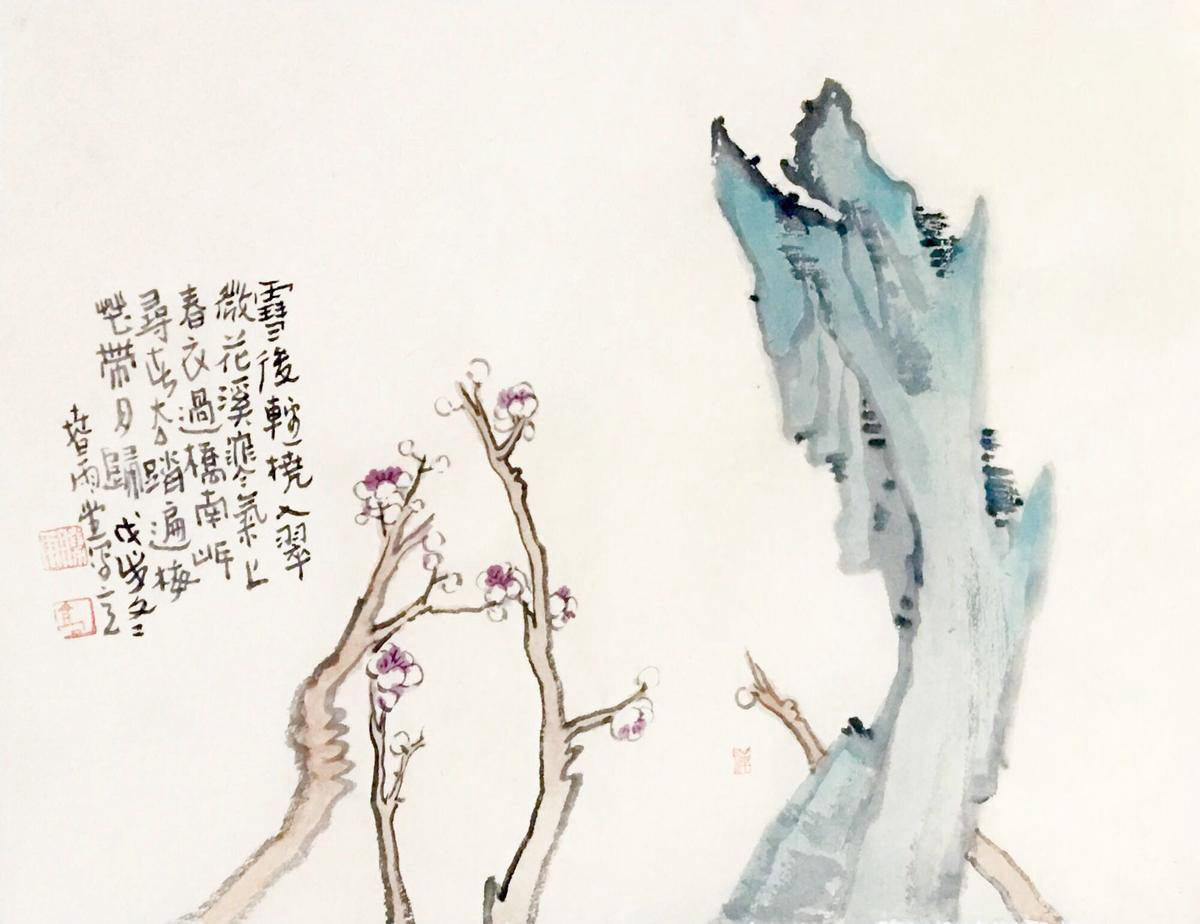 雪後輕橈入翠
微花溪寒氣上
春衣過橋南岸
尋春去踏遍梅
花帶月歸戊戌冬
雨堂写之